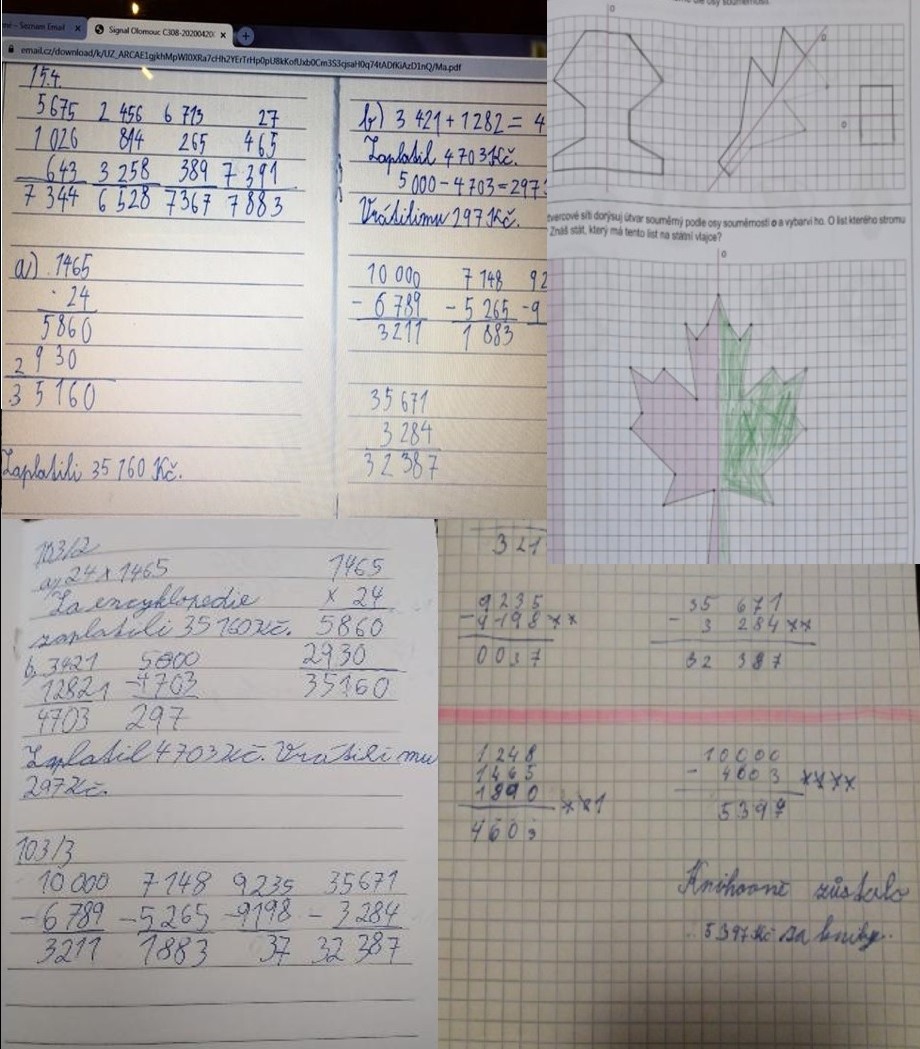 né - Seznam Email × Signal Olomouc C308-2020042 × +
email.cz/download/k/UZ_ARCAE1gjkhMpWI0XRa7cHh2YErTrHp0pU8kKofUxb0Cm3S3cjsaH0q74tADfKiAzD1nQ/Ma.pdf
15.4.
5675 2 456 6 713 27
1 026 814 265 465
643 3 258 389 7 391
7 344 6 528 7367 7 883
a) 1465
· 24
5860
2 9 30
3 5 160
Zaplatili 35 160 Kč.
b) 3 421 + 1282 = 4
Zaplatil 4703 Kč.
5 000 - 4703 = 297
Vrátili mu 297 Kč.
10 000 7 148 92
- 6 789 - 5 265 - 9
3211 1 883
35 671
3 284
32 387
dle osy souměrnosti
o
o
o
tvercové síti dorýsuj útvar souměrný podle osy souměrnosti o a vybarvi ho. O list kterého stromu
Znáš stát, který má tento list na státní vlajce?
o
103/2
a) 24 x 1465
Za encyklopedie
zaplatili 35160Kč.
1465
x 24
5860
2930
35160
b, 3421 5000
1282 - 4703
4703 297
Zaplatil 4703Kč. Vrátili mu
297Kč.
103/3
10 000 7148 9235 35671
- 6 789 - 5265 - 9198 - 3284
3211 1883 37 32 387
321
9235
- 9198 xx
0037
35 671
- 3 284 xx
32 387
1248
1465
1890 xx1
4603
10000
- 4603 xxxx
5397
Knihovně zůstalo
5397Kč za knihy.